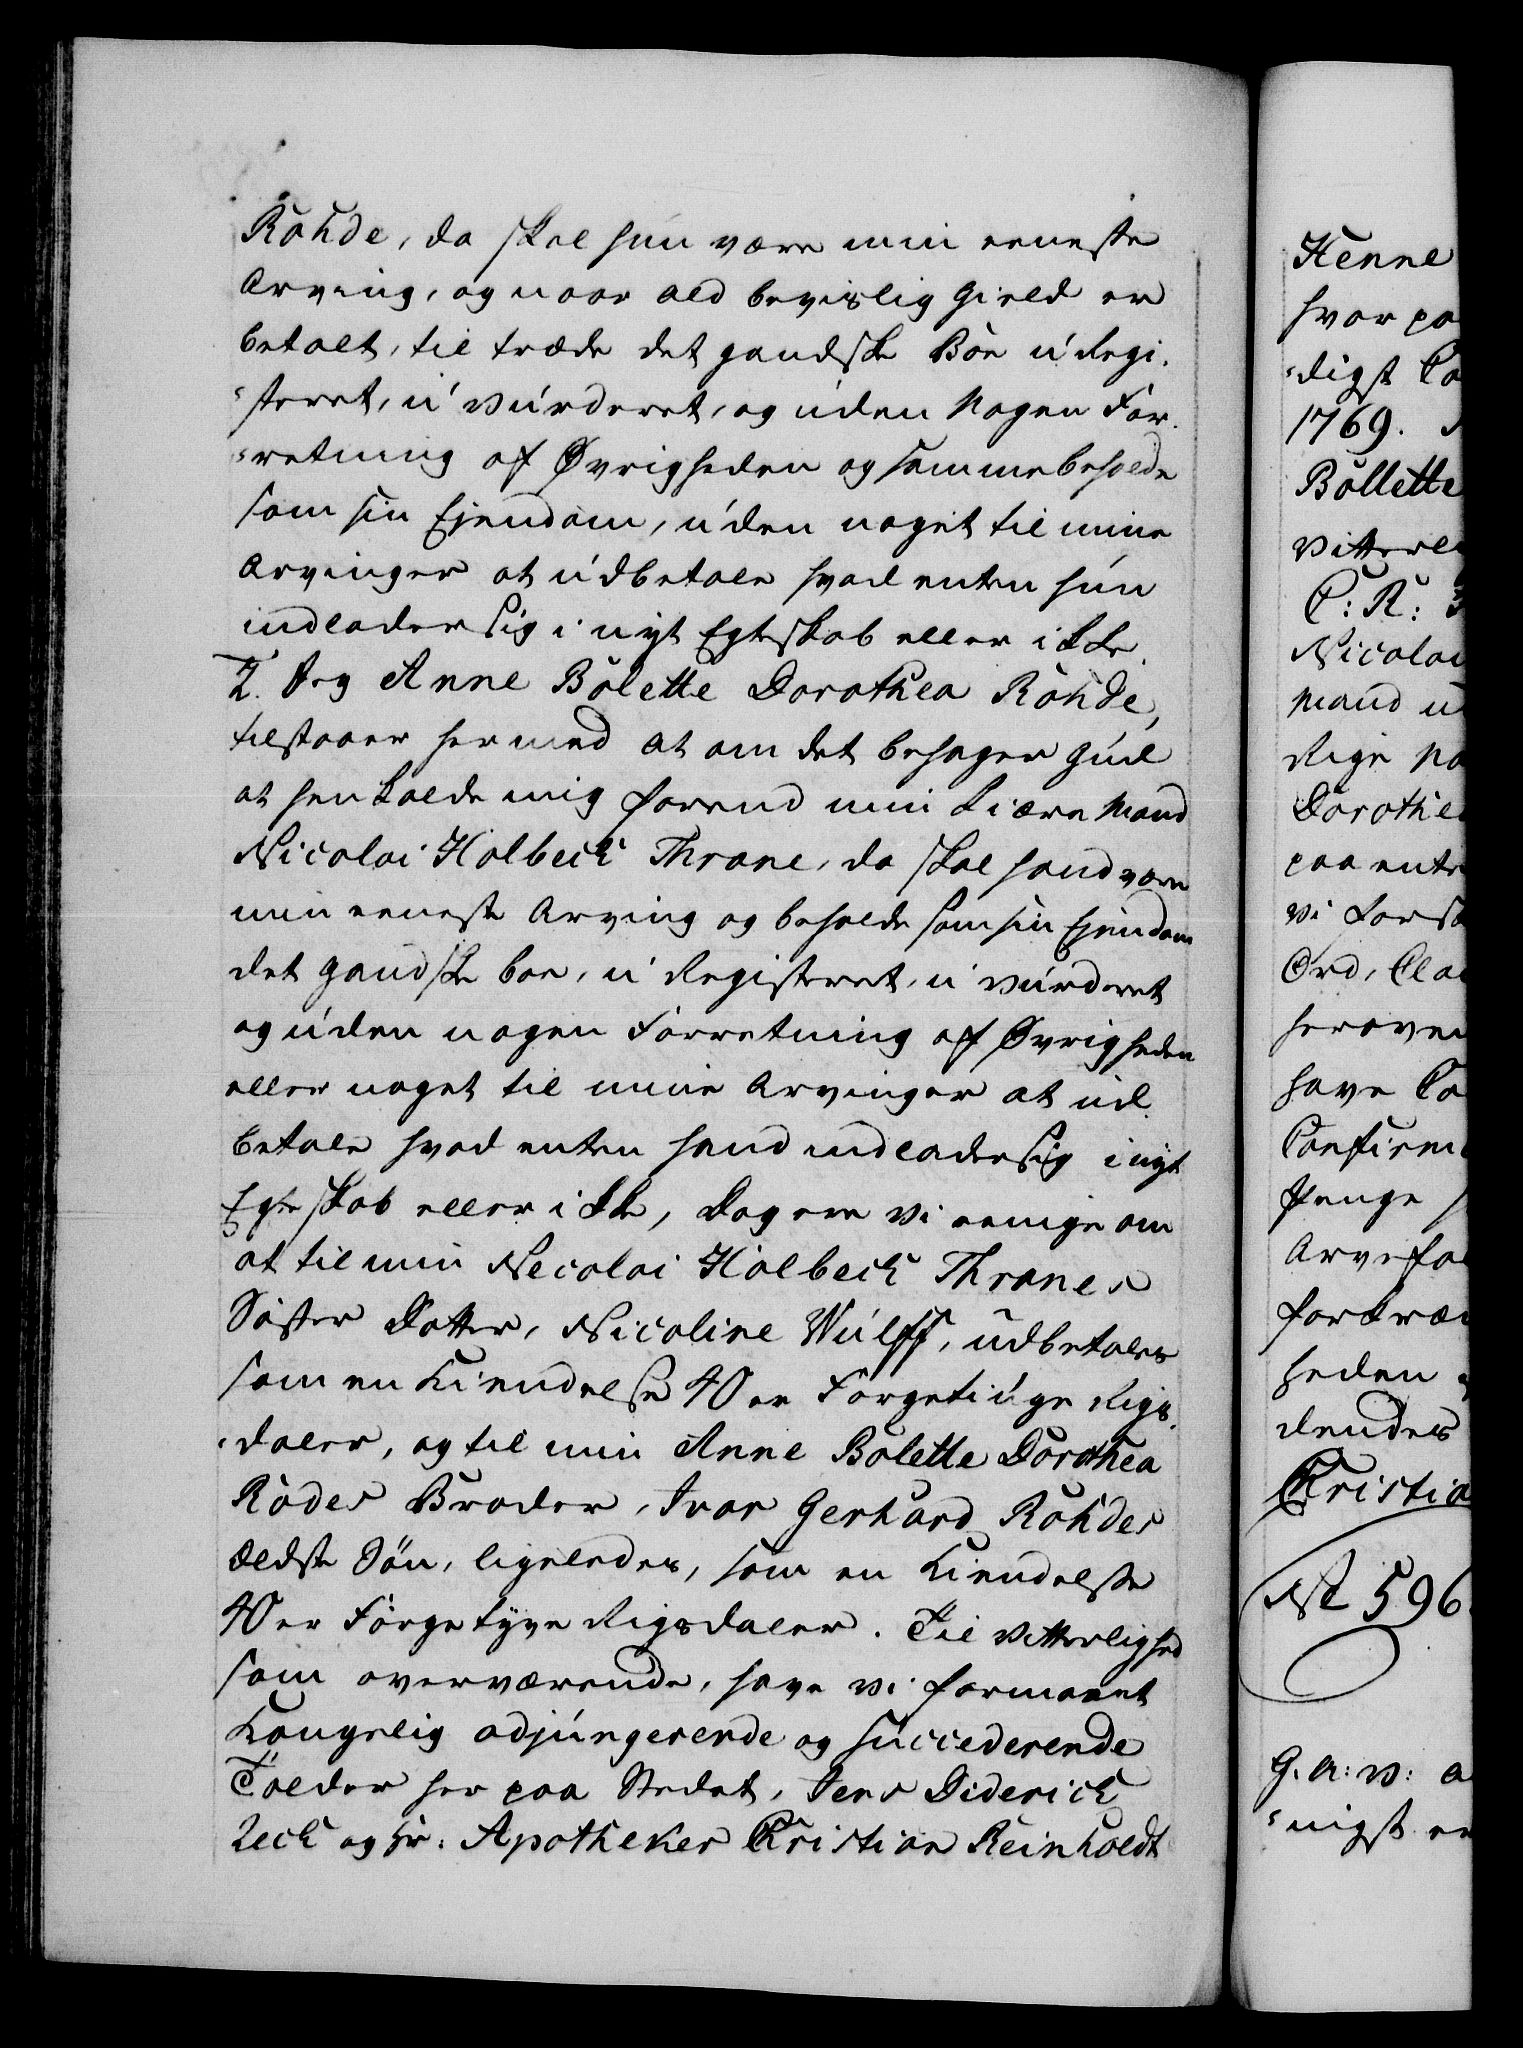 Rohde, da skal hun være min eeneste
Arving, og naar ald bevislig Gield er
betalt, til træde det gandske Boe u Regi-
steret, u vurderet, og uden Nogen For-
retning af Øvrigheden og samme beholde
som sin Ejendom, uden noget til mine
Arvinger at udbetale hvad enten hun
indlader sig i nyt Egteskab eller ikke.
2. Jeg Anne Bolette Dorothea Rohde,
tilstaaer hermed at om det behager Gud
at henkalde mig forend min kiære Mand
Nicolai Holbech Thrane, da skal hand være
min eeneste Arving og beholde som sin Ejendom
det gandske boe, u Registeret, u vurderet
og uden nogen Forretning af Øvrigheden
eller noget til mine Arvinger at ud-
betale hvad enten hand indlader sig i nyt
Egteskab eller ikke, Dog ere vi eenige om
at til min Necolai Holbech Thranes
Søster Datter, Nicoline Wulff, udbetales
som en Kiendelse 40 er Førgetiuge Rigs-
daler, og til min Anne Bolette Dorothea
Rodes Broder, Ivar Gerhard Rohdes
ældste Søn, ligeledes, som en Kiendelse
40 er Førgetyve Rigsdaler. Til Vitterlighed
som overværende, have vi formaaet
Kongelig adjungerende og succederende
Tolder her paa Stedet, Jens Diderich
Zech og Hr: Apotheker Christian Reinholdt
Henne
hvor paa
digst Co
1769.
Bollette
vitterl
C: R: 
Nicolai
Mand u
Rige No
Dorothe
paa ent
vi forst
Ord, Cla
heroven
have Co
Confirm
Penge
Arvefal
forkræn
heden
lendes
Christia
No 596.
G. A: V: a
nigst er